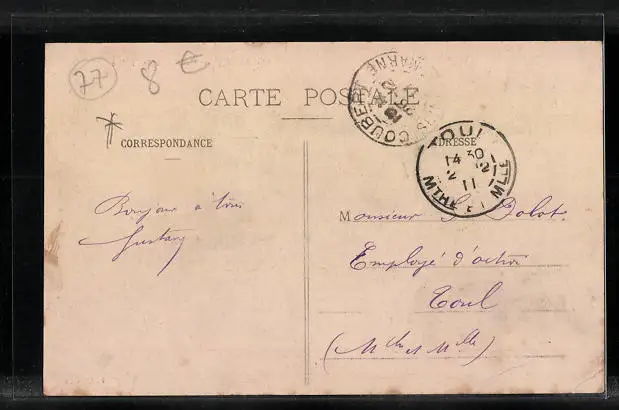 77
8 €
CARTE POSTALE
CORRESPONDANCE
ADRESSE
COUBERT
MARNE
TOUL
14 30
2 12
11
MTHE ET MLLE
Bonjour à tous
Gustave
Monsieur Bolot
Employé d'octroi
Toul
(Mthe et Mlle)